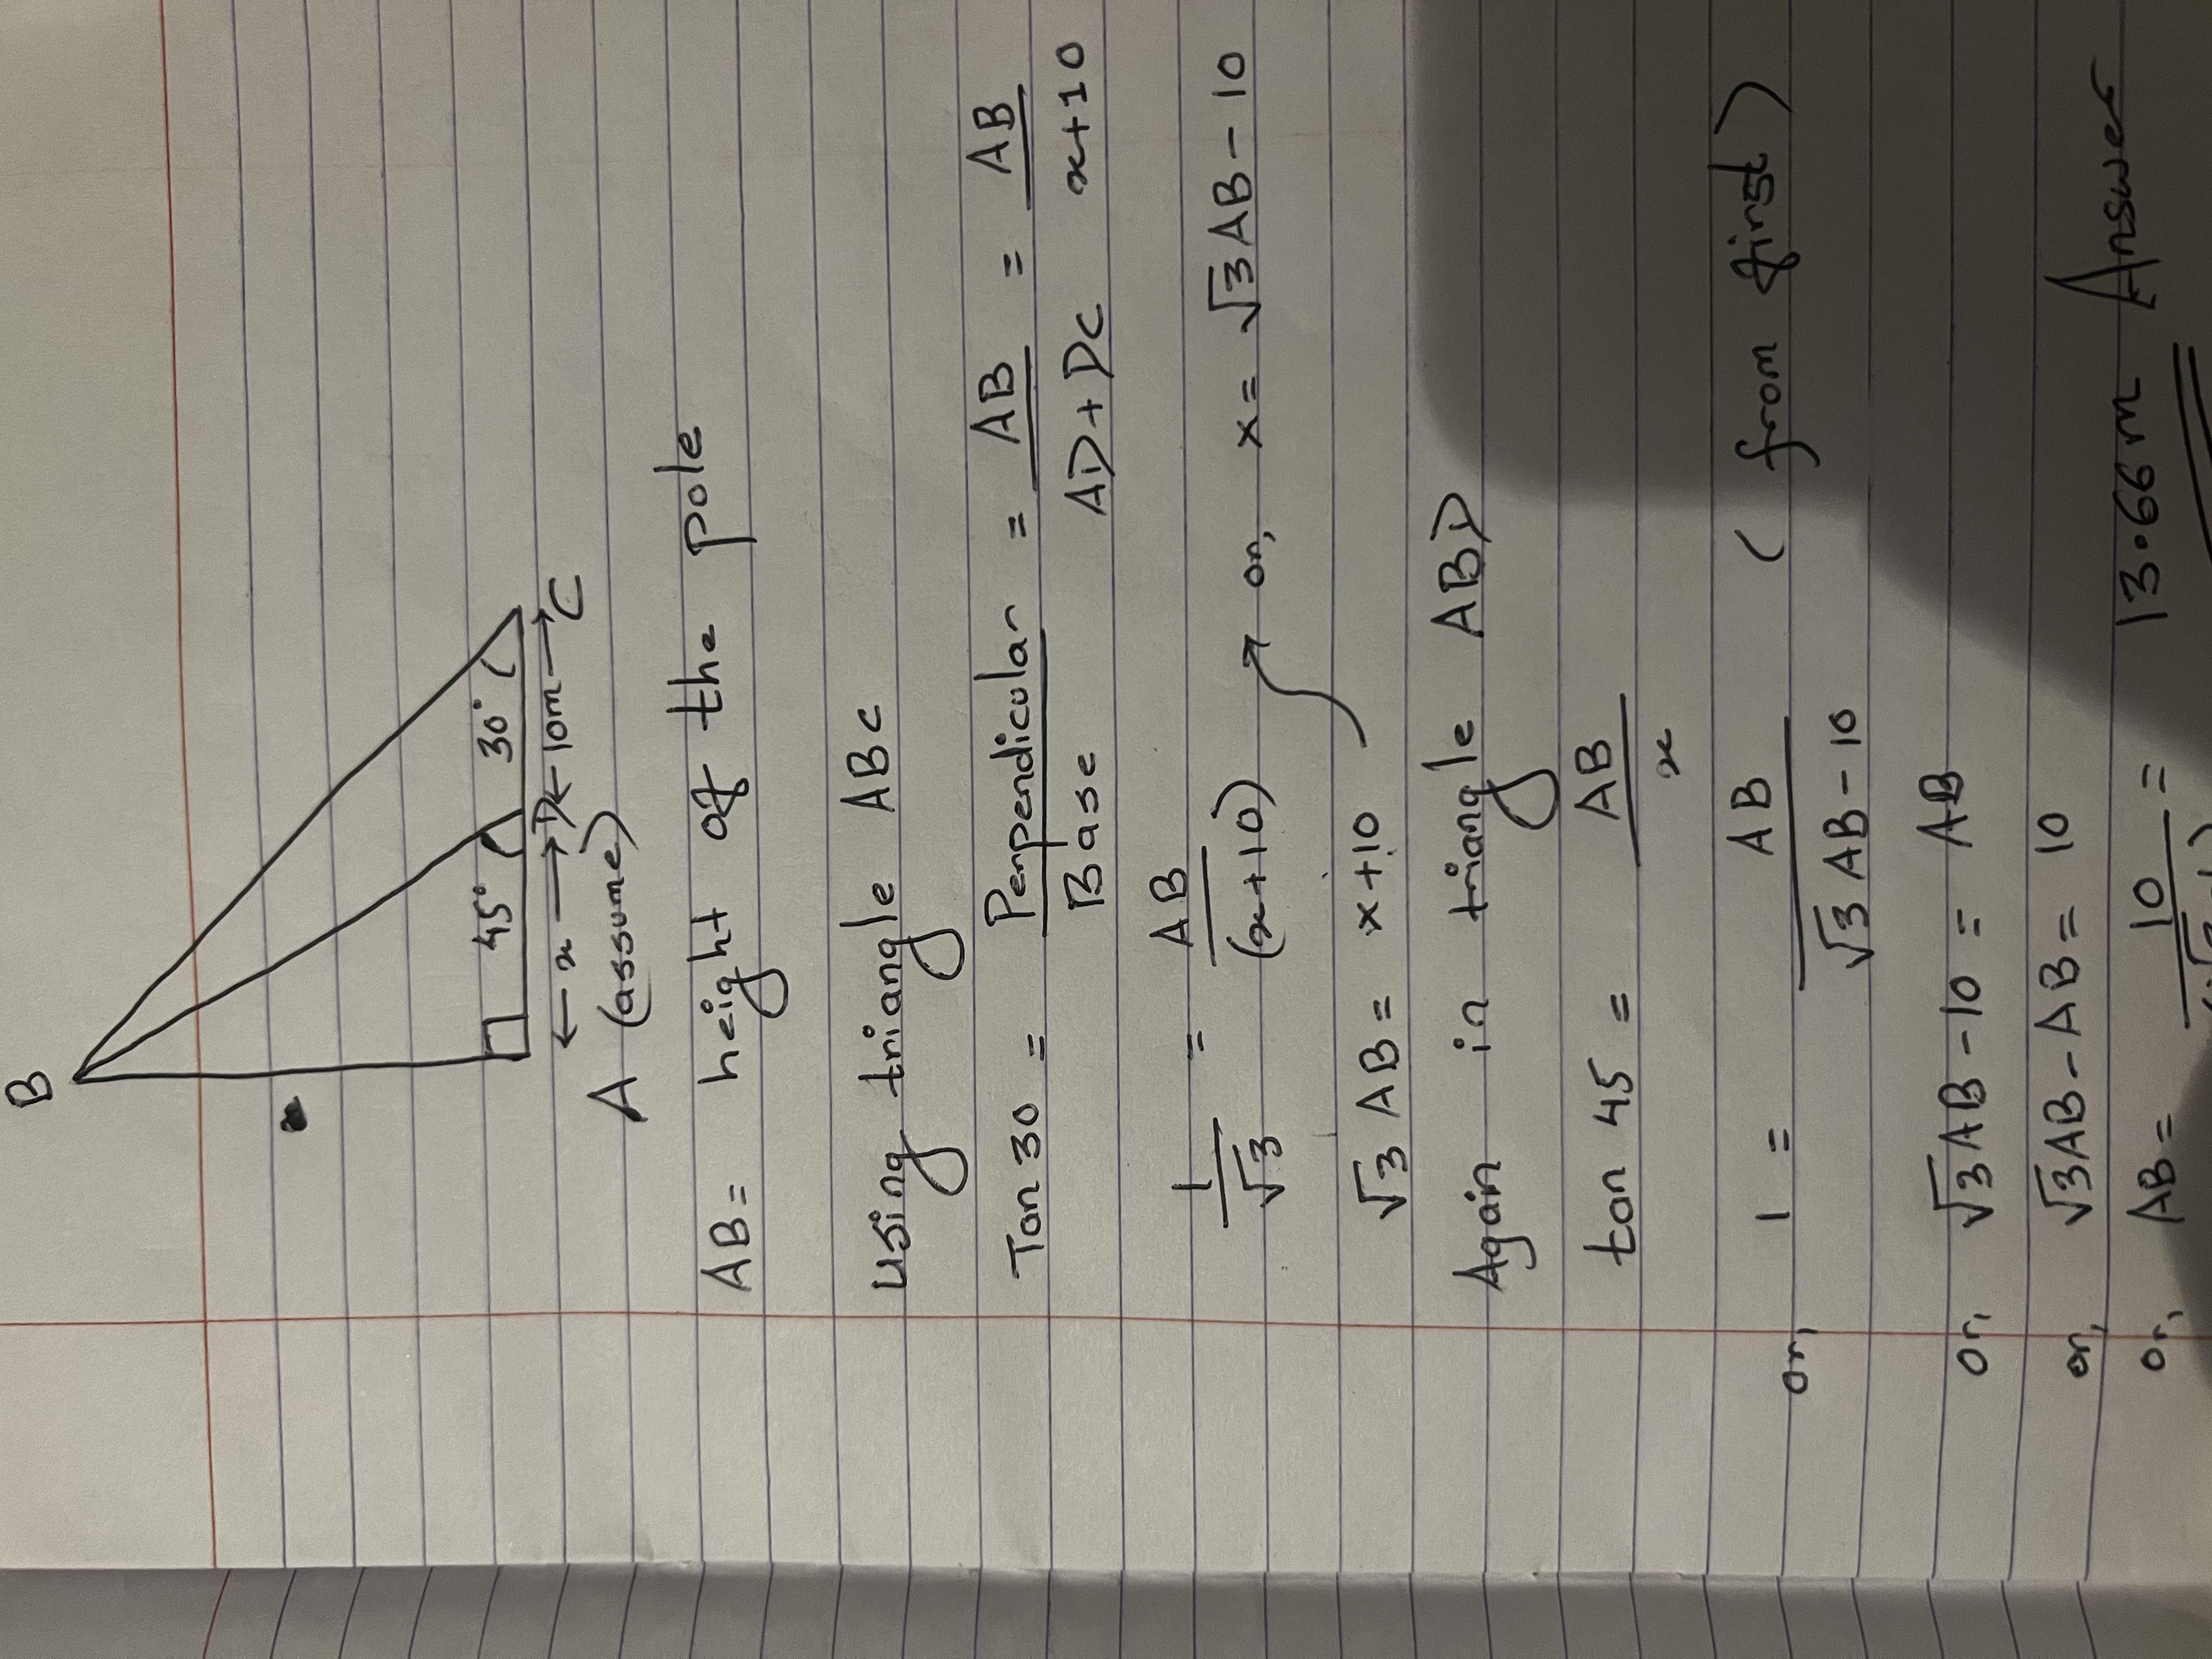 B
45° 30°
← x → D ← 10m → C
A (assume)
AB = height of the pole
Using triangle ABC
Tan 30 = Perpendicular / Base = AB / AD+DC = AB / x+10
1/√3 = AB / (x+10)
√3 AB = x+10 → or, x = √3 AB - 10
Again in triangle ABD
tan 45 = AB / x
or, 1 = AB / √3 AB - 10 (from first)
or, √3 AB - 10 = AB
or, √3 AB - AB = 10
or, AB = 10 / = 13.66m Answer